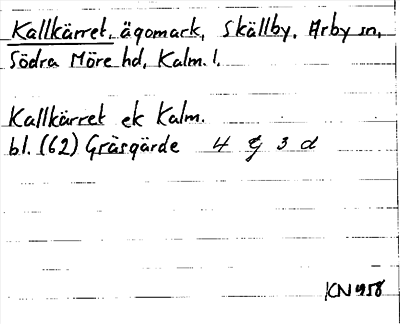 Kallkärret, ägomark, Skällby, Arby sn,
Södra Möre hd, Kalm. l.
Kallkärret ek Kalm.
bl. (62) Gräsgärde 4 G 3 d
KN 958